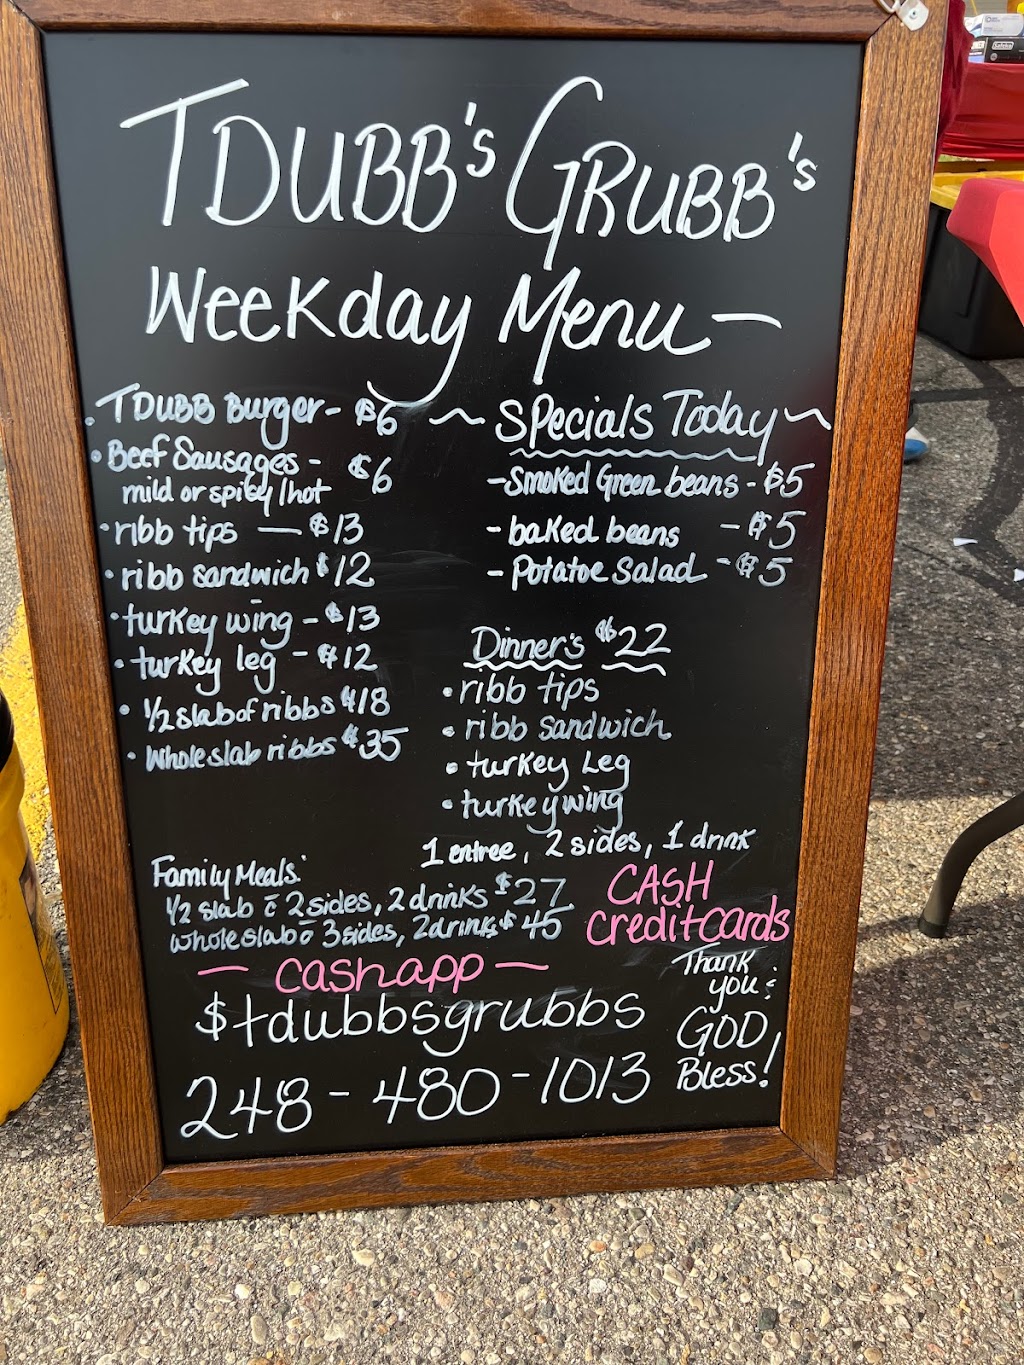 TDUBB's GRUBB's
Weekday Menu —
• TDUBB Burger - $6
• Beef Sausages - $6
mild or spicy / hot
• ribb tips — $13
• ribb sandwich $12
• turkey wing - $13
• turkey leg - $12
• 1/2 slab of ribbs $18
• Whole slab ribbs $35
~ Specials Today ~
- Smoked Green beans - $5
- baked beans - $5
- Potatoe Salad - $5
Dinner's $22
• ribb tips
• ribb sandwich
• turkey Leg
• turkey wing
1 entree, 2 sides, 1 drink
Family Meals:
1/2 slab c̄ 2 sides, 2 drinks $27
whole slab c̄ 3 sides, 2 drinks $45
CASH
credit cards
— cashapp —
$tdubbsgrubbs
248-480-1013
Thank
you :
GOD
Bless!